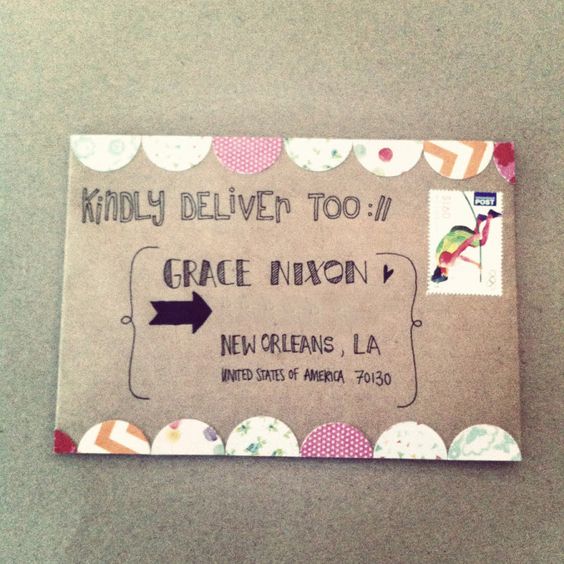 KiNDLY DELiVEr TOO://
GRACE NIXON
NEW ORLEANS, LA
UNITED STATES OF AMERICA 70130
$1.60
POST